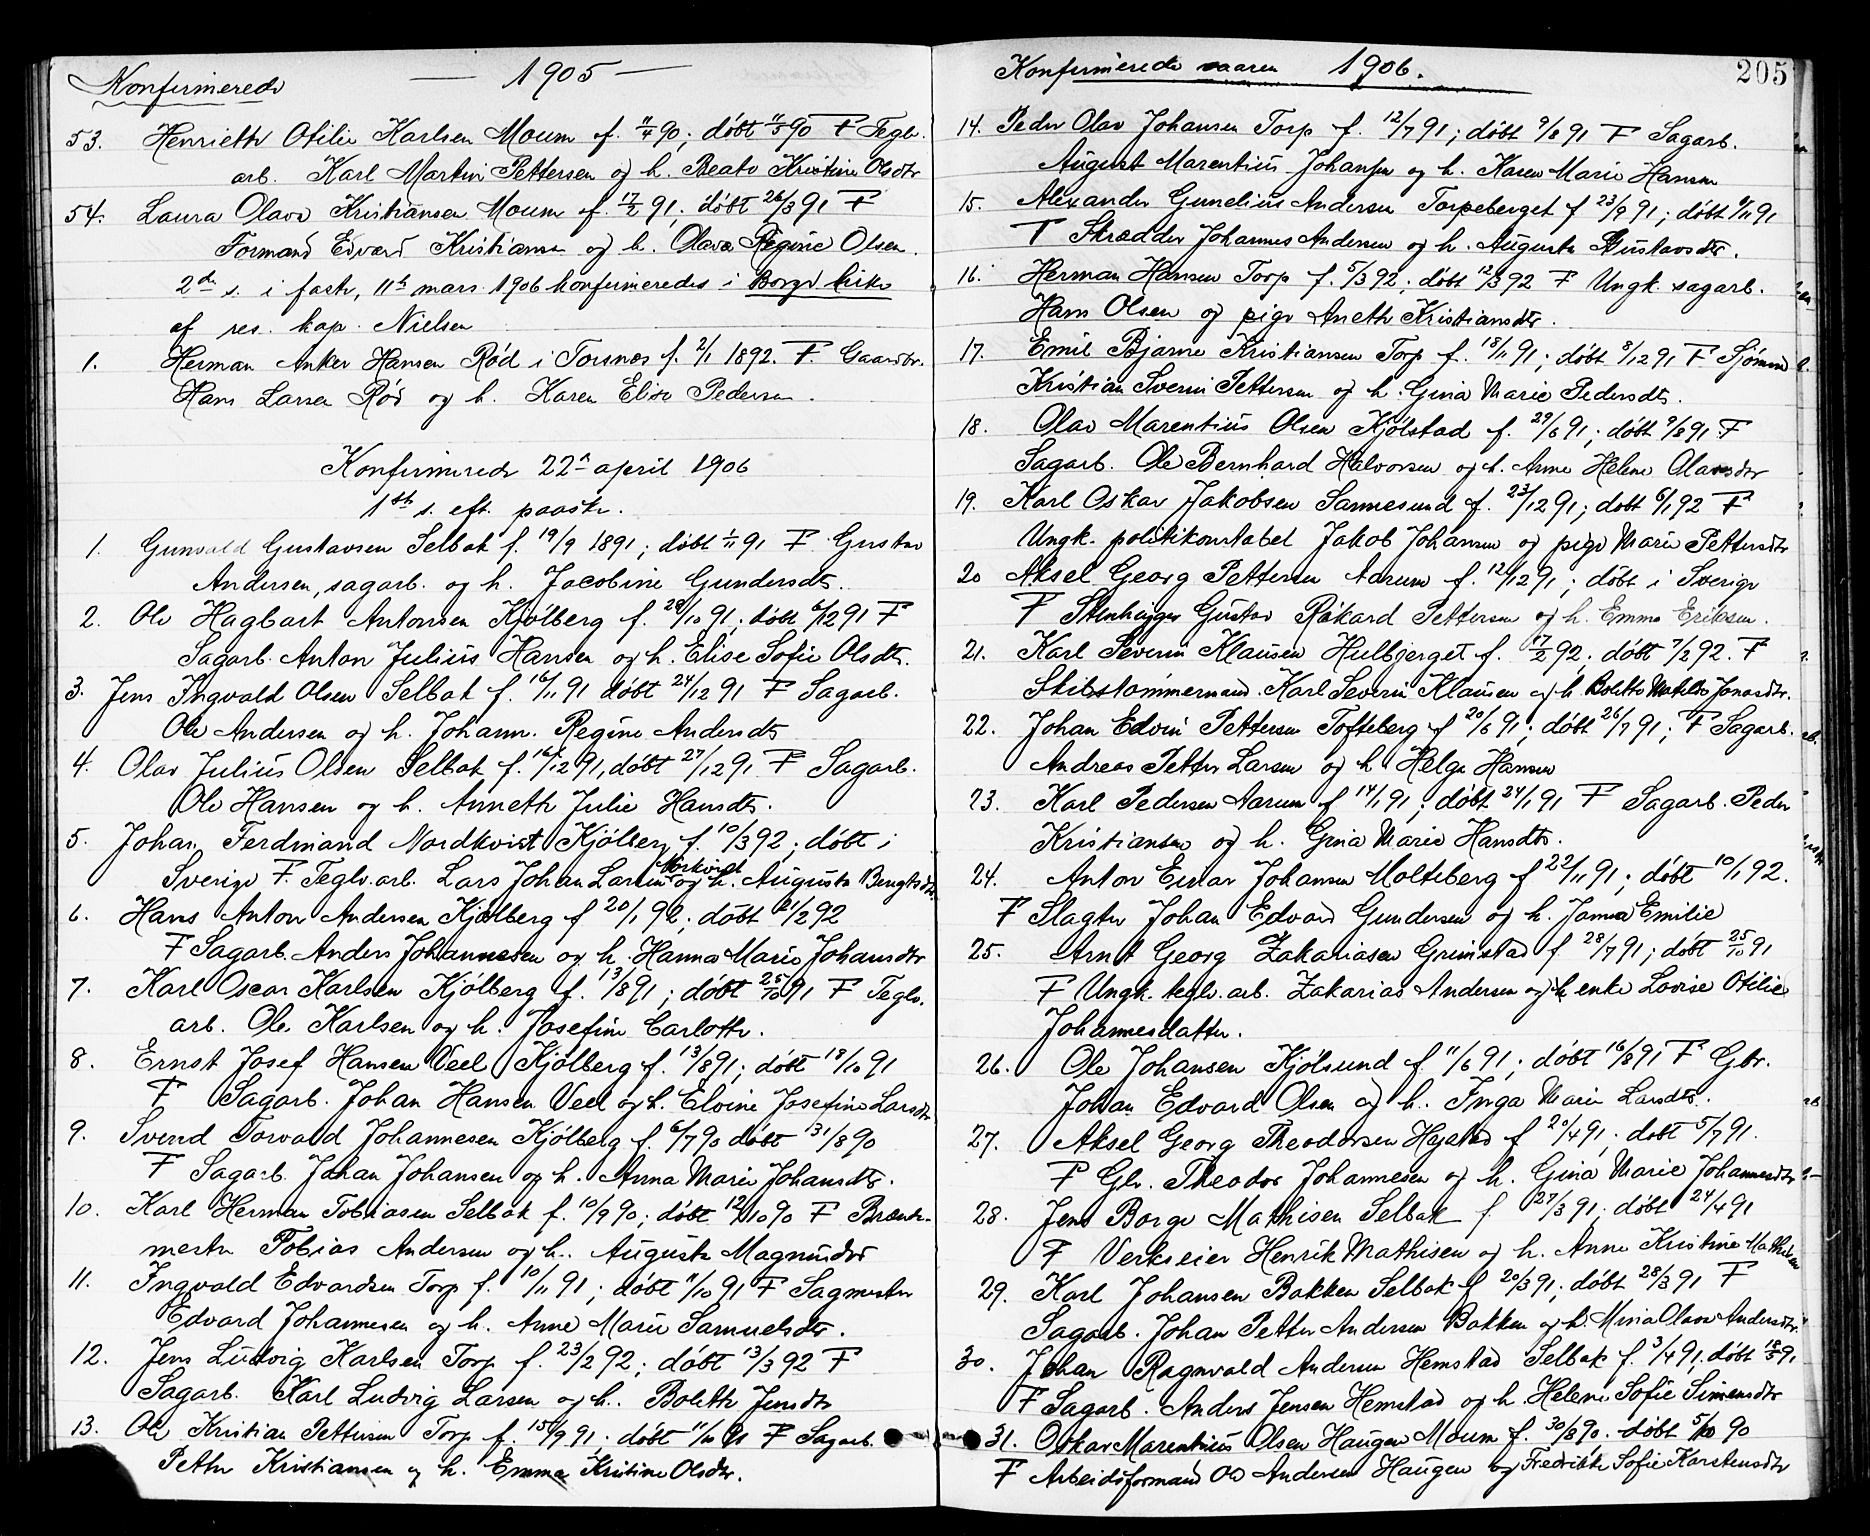 Konfirmerede — 1905 —
53. Henriette Otilie Karlsen Moum f. 11/4 90; døbt 11/5 90 F Teglv.
arb. Karl Martin Pettersen og h. Beate Kristine Olsdtr
54. Laura Olava Kristiansen Moum f. 17/2 91; døbt 26/3 91 F
Formand Edvard Kristiansen og h. Olava Regine Olsen.
2den s. i faste, 11te mars 1906 konfirmeredes i Borge kirke
af res. kap. Nielsen
1. Herman Anker Hansen Rød i Torsnes f. 2/1 1892. F. Gaardbr.
Hans Larsen Rød og h. Karen Elise Pedersen.
Konfirmerede 22de april 1906
1ste s. eft. paaske.
1. Gunvald Gustavsen Selbak f. 19/9 1891; døbt 1/11 91 F Gustav
Andersen, sagarb. og h. Jacobine Gundersdtr.
2. Ole Hagbart Antonsen Kjølberg f. 28/10 91; døbt 6/12 91 F
Sagarb. Anton Julius Hansen og h. Elise Sofie Olsdtr.
3. Jens Ingvald Olsen Selbak f. 16/11 91 døbt 24/12 91 F Sagarb.
Ole Andersen og h. Johanne Regine Andersdtr
4. Olav Julius Olsen Selbak f. 16/12 91, døbt 27/12 91 F Sagarb.
Ole Hansen og h. Annette Julie Hansdtr.
5. Johan Ferdinand Nordkvist Kjølberg f. 10/3 92; døbt i
Sverige F. Teglv.arb. Lars Johan Larsen Norkvist og h. Augusta Bengtsdtr.
6. Hans Anton Andersen Kjølberg f 20/1 92; døbt 21/2 92
F Sagarb. Anders Johannesen og h. Hanna Marie Johansdtr
7. Karl Oscar Karlsen Kjølberg f. 13/8 91; døbt 25/10 91 F Teglv.
arb. Ole Karlsen og h. Josefine Carlotte.
8. Ernst Josef Hansen Veel Kjølberg f. 13/8 91; døbt 18/10 91
F Sagarb. Johan Hansen Veel og h. Elvine Josefine Larsdtr
9. Svend Torvald Johannesen Kjølberg f. 6/7 90 døbt 31/8 90
F Sagarb. Johan Johansen og h. Anna Marie Johansdtr.
10. Karl Herman Tobiasen Selbak f. 10/9 90; døbt 12/10 90 F Brænk-
mester Tobias Andersen og h. Augusta Magnusdtr
11. Ingvald Edvardsen Torp f. 10/11 91; døbt 11/10 91 F Sagmester
Edvard Johannesen og h. Anne Marie Samuelsdtr.
12. Jens Ludvig Karlsen Torp f. 23/2 92; døbt 13/3 92 F
Sagarb. Karl Ludvig Larsen og h. Bolette Jensdtr
13. Ole Kristian Pettersen Torp f. 15/9 91; døbt F Sagarb.
Petter Kristiansen og h. Emma Kristine Olsdtr.
Konfirmerede vaaren 1906. 205
14. Peder Olav Johansen Torp f. 12/7 91; døbt 9/8 91 F Sagarb.
August Marentius Johansen og h. Karen Marie Hansen
15. Alexander Gunelius Andersen Torpeberget f 23/9 91; døbt 1/11 91
F Skrædder Johannes Andersen og h. Augusta Gustavsdtr.
16. Herman Hansen Torp f. 5/3 92; døbt 12/3 92 F Ungk. sagarb.
Hans Olsen og pige Anette Kristiansdtr.
17. Emil Bjarne Kristiansen Torp f. 18/11 91; døbt 8/12 91 F Sjømand
Kristian Sverin Pettersen og h. Gina Marie Pedersdtr.
18. Olav Marentius Olsen Kjølstad f. 29/6 91; døbt 9/8 91 F
Sagarb. Ole Bernhard Halvorsen og h. Anne Helene Olavsdtr
19. Karl Oskar Jakobsen Sannesund f. 23/12 91; døbt 6/1 92 F
Ungk. politikonstabel Jakob Johansen og pige Marie Pettersdtr
20 Aksel Georg Pettersen Aarum f. 12/12 91; døbt i Sverige
F Stenhugger Gustav Rikard Pettersen og h. Emma Eriksen.
21. Karl Severin Klausen Hulbjerget f. 17/2 92. døbt 7/2 92. F
Skibstømmermand Karl Severin Klausen og h Bolette Matilde Jonasdtr.
22. Johan Edvin Pettersen Tofteberg f 20/6 91; døbt 26/7 91; F Sagarb.
Andreas Petter Larsen og h Helga Hansen
23. Karl Pedersen Aarum f 14/1 91; døbt 24/1 91 F Sagarb. Peder
Kristiansen og h. Gina Marie Hansdtr.
24. Anton Einar Johansen Molteberg f 22/11 91; døbt 10/1 92.
F Slagter Johan Edvard Gundersen og h. Janna Emilie
25. Arnt Georg Zakariasen Grimstad f 28/7 91; døbt 25/10 91
F Ungk. teglv. arb. Zakarias Andersen og enke Lovise Otilie
Johannesdatter.
26. Ole Johansen Kjølsund f 11/6 91; døbt 16/8 91 F Gbr.
Johan Edvard Olsen og h. Inga Marie Larsdtr.
27. Aksel Georg Theodorsen Hystad f 20/4 91. døbt 5/7 91.
F Gbr. Theodor Johannesen og h. Gina Marie Johannesdtr
28. Jens Borge Mathisen Selbak f 27/3 91; døbt 24/4 91
F Verkseier Henrik Mathisen og h. Anne Kristine Mathisen
29. Karl Johansen Bakken Selbak f 20/3 91; døbt 28/3 91 F
Sagarb. Johan Petter Andersen Bakken og h. Mina Olava Andersdtr.
30. Johan Ragnvald Andersen Hemstad Selbak f. 3/4 91. døbt 18/5 91
F Sagarb. Anders Jensen Hemstad og h Helene Sofie Simensdtr
31. Oskar Marentius Olsen Haugen Moum f. 30/8 90. døbt 5/10 90
F Arbeidsformand Ole Andersen Haugen og Fredrikke Sofie Karstensdtr